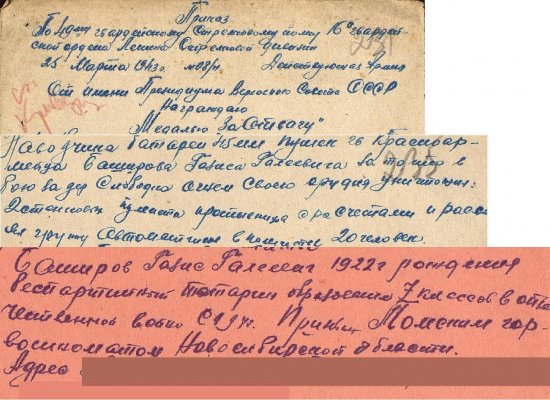 Приказ
По 49му гвардейскому Стрелковому полку 16й гвардей-
ской ордена Ленина Стрелковой дивизии
25 Марта 1943г №08/н Действующая Армия
От имени Президиума Верховного Совета СССР
Награждаю
Медалью За Отвагу"
Наводчика батареи 45мм пушек гв Красноар-
мейца Баширова Гависа Галеевича за то что в
бою за дер Слободка огнем своего орудия уничтожил:
2 станковых пулемета противника с расчетами и рассе-
ял группу автоматчиков в количестве 20 человек.
Баширов Гавис Галеевич 1922г рождения
беспартийный татарин образование 7 классов в отe
чественной войне с 194 г. Призван Томским гор-
военкоматом Новосибирской области.
Адрес